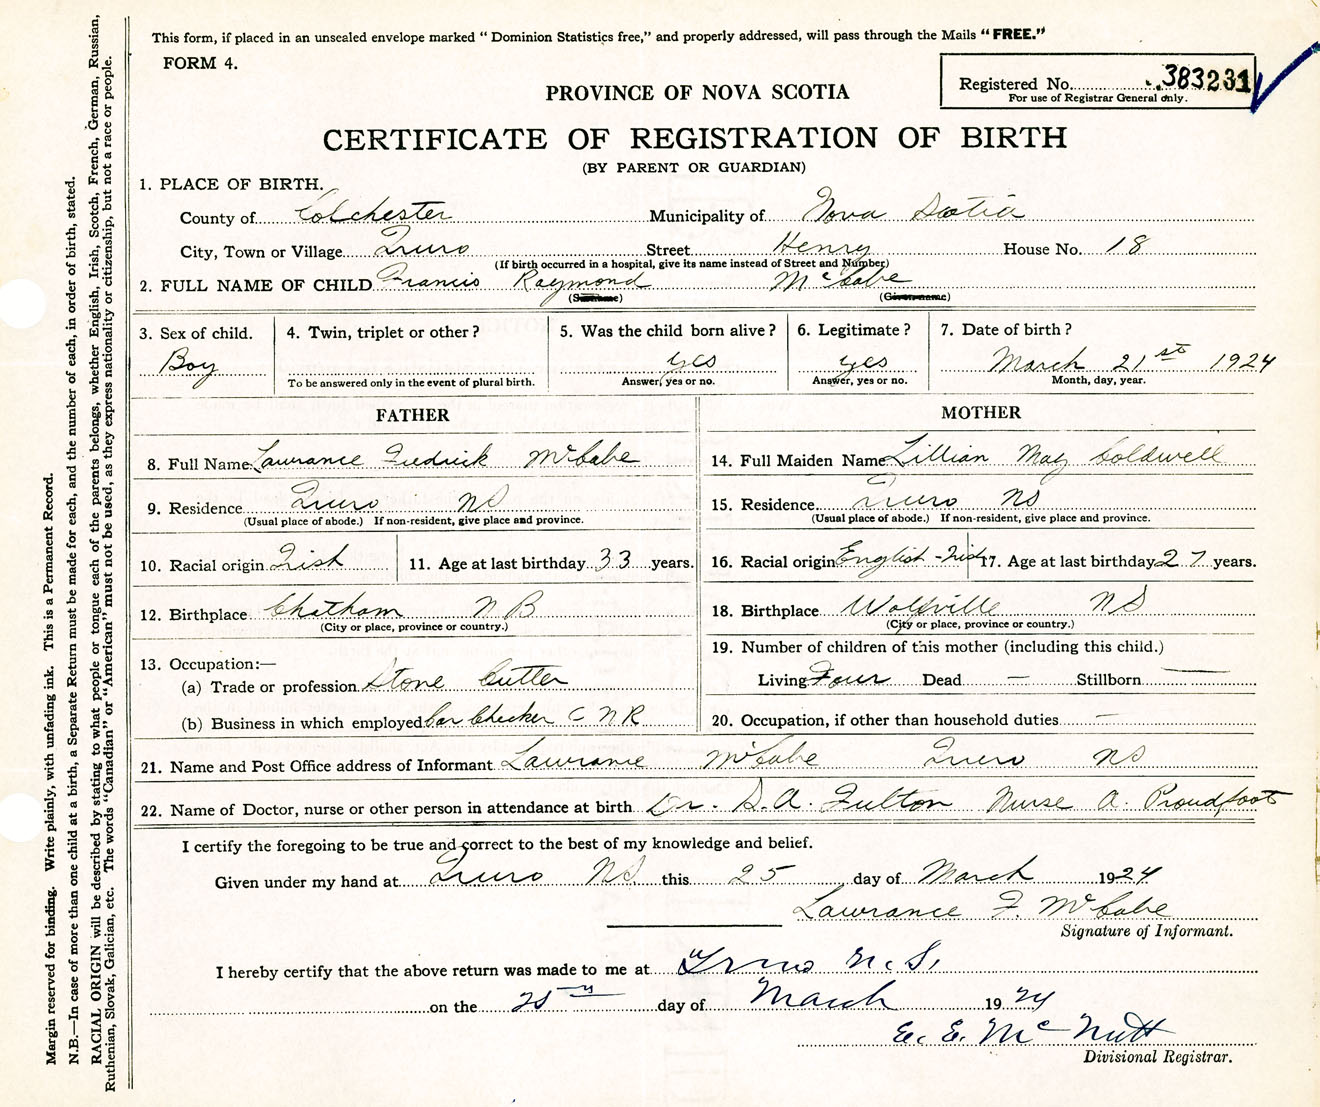 This form, if placed in an unsealed envelope marked “ Dominion Statistics free,” and properly addressed, will pass through the Mails “ FREE.”
FORM 4.
Registered No. 383231
For use of Registrar General only.
PROVINCE OF NOVA SCOTIA
CERTIFICATE OF REGISTRATION OF BIRTH
(BY PARENT OR GUARDIAN)
1. PLACE OF BIRTH.
County of Colchester Municipality of Nova Scotia
City, Town or Village Truro Street Henry House No. 18
(If birth occurred in a hospital, give its name instead of Street and Number)
2. FULL NAME OF CHILD Francis Raymond McCabe
(Surname) (Given name)
3. Sex of child. 4. Twin, triplet or other ? 5. Was the child born alive ? 6. Legitimate ? 7. Date of birth ?
Boy yes yes March 21st 1924
To be answered only in the event of plural birth. Answer, yes or no. Answer, yes or no. Month, day, year.
FATHER MOTHER
8. Full Name Lawrance Fredrick McCabe 14. Full Maiden Name Lillian May Coldwell
9. Residence Truro NS 15. Residence Truro NS
(Usual place of abode.) If non-resident, give place and province. (Usual place of abode.) If non-resident, give place and province.
10. Racial origin Irish 11. Age at last birthday 33 years. 16. Racial origin English-Irish 17. Age at last birthday 27 years.
12. Birthplace Chatham N B 18. Birthplace Wolfville NS
(City or place, province or country.) (City or place, province or country.)
13. Occupation:— 19. Number of children of this mother (including this child.)
(a) Trade or profession Stone Cutter Living Four Dead — Stillborn —
(b) Business in which employed Car Checker C N R 20. Occupation, if other than household duties —
21. Name and Post Office address of Informant Lawrance McCabe Truro NS
22. Name of Doctor, nurse or other person in attendance at birth Dr. S.A. Fulton Nurse A. Proudfoot
I certify the foregoing to be true and correct to the best of my knowledge and belief.
Given under my hand at Truro NS. this 25 day of March 1924
Lawrance F. McCabe
Signature of Informant.
I hereby certify that the above return was made to me at Truro N.S.
on the 25th day of March 1924
E. E. McNutt
Divisional Registrar.
Margin reserved for binding. Write plainly, with unfading ink. This is a Permanent Record.
N.B.—In case of more than one child at a birth, a Separate Return must be made for each, and the number of each, in order of birth, stated.
RACIAL ORIGIN will be described by stating to what people or tongue each of the parents belongs, whether English, Irish, Scotch, French, German, Russian,
Ruthenian, Slovak, Galician, etc. The words “Canadian” or “American” must not be used, as they express nationality or citizenship, but not a race or people.